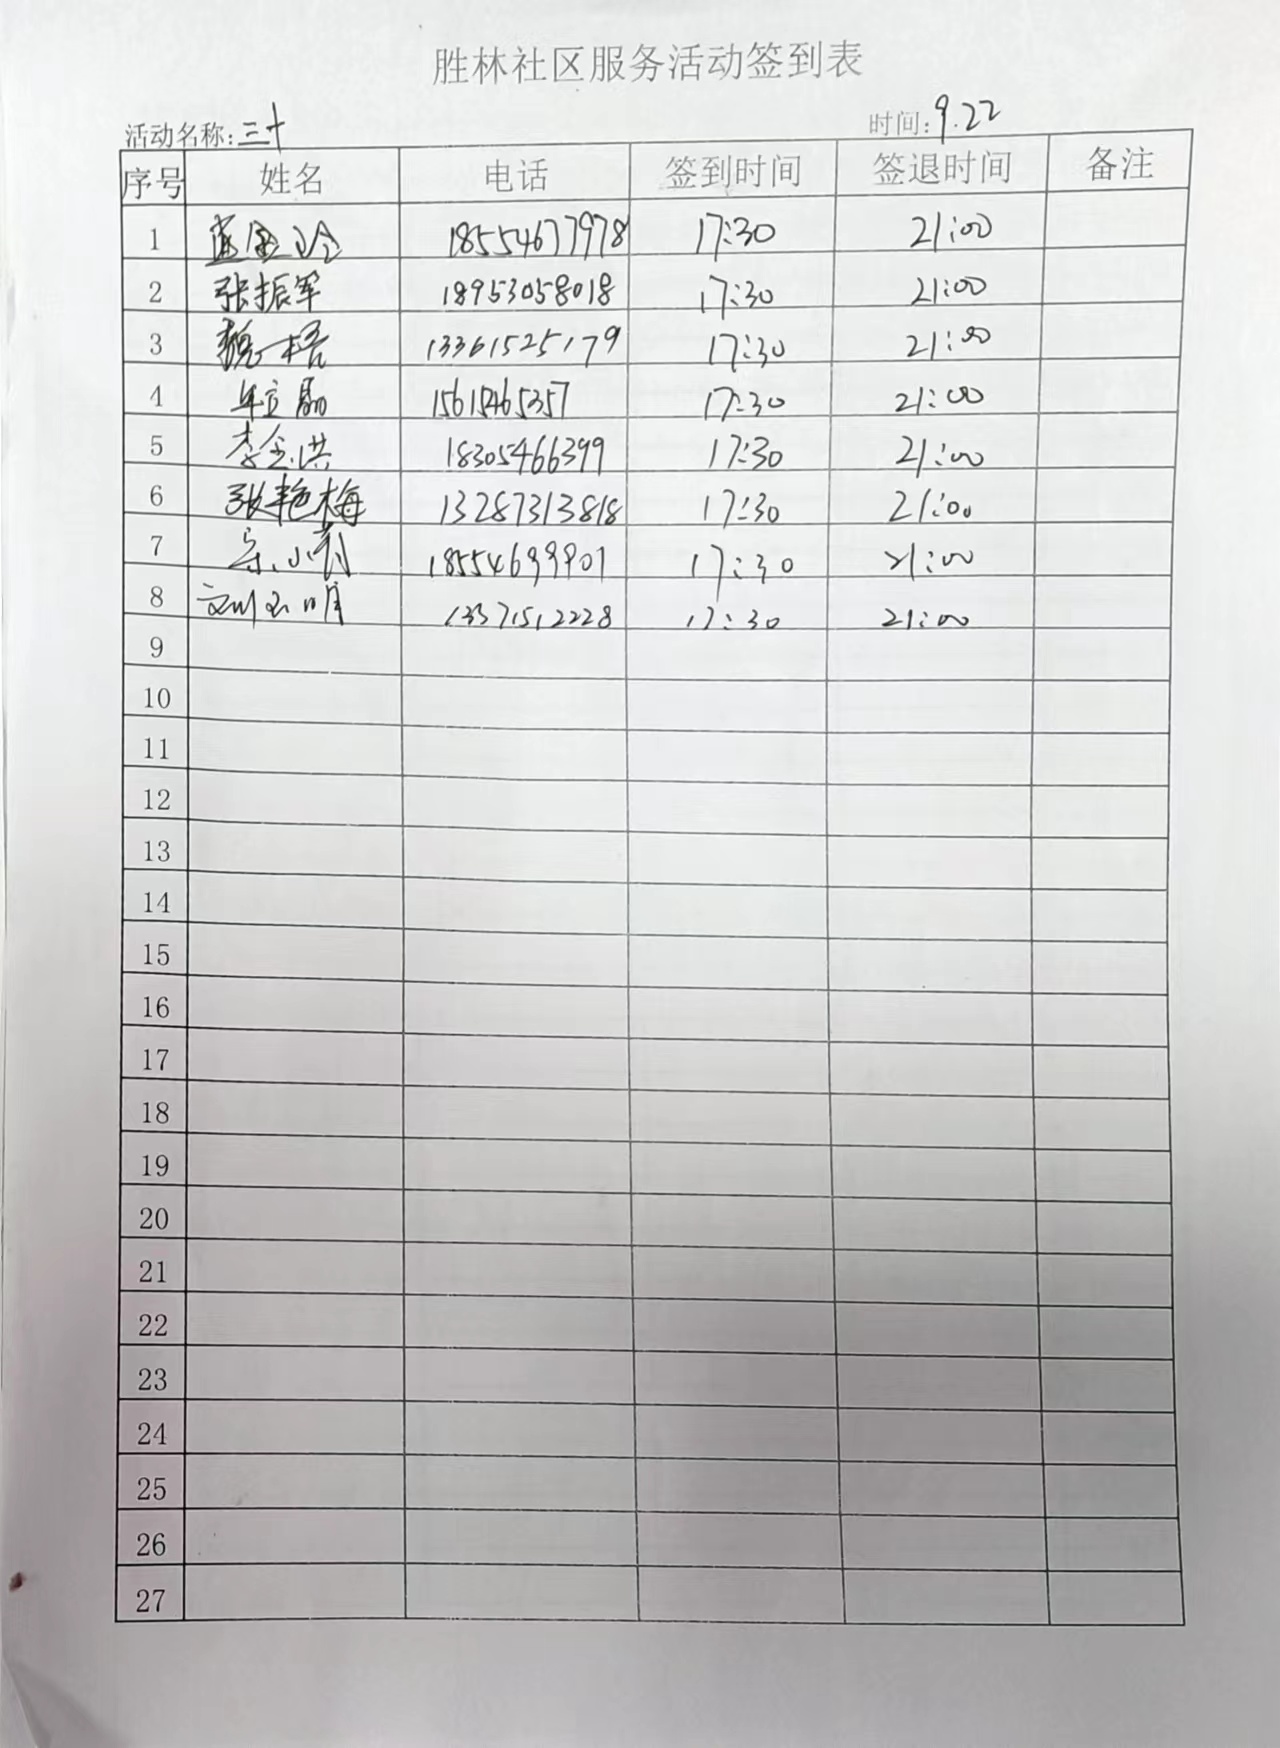 胜林社区服务活动签到表
活动名称:三十 时间:9.22
序号 姓名 电话 签到时间 签退时间 备注
1 18554677978 17:30 21:00
2 张振军 18953058018 17:30 21:00
3 魏 13361525179 17:30 21:00
4 15615465357 17:30 21:00
5 李金洪 18305466399 17:30 21:00
6 张艳梅 13287313818 17:30 21:00
7 宋小莉 17:30 21:00
8 刘玉明 13371512228 17:30 21:00
9
10
11
12
13
14
15
16
17
18
19
20
21
22
23
24
25
26
27